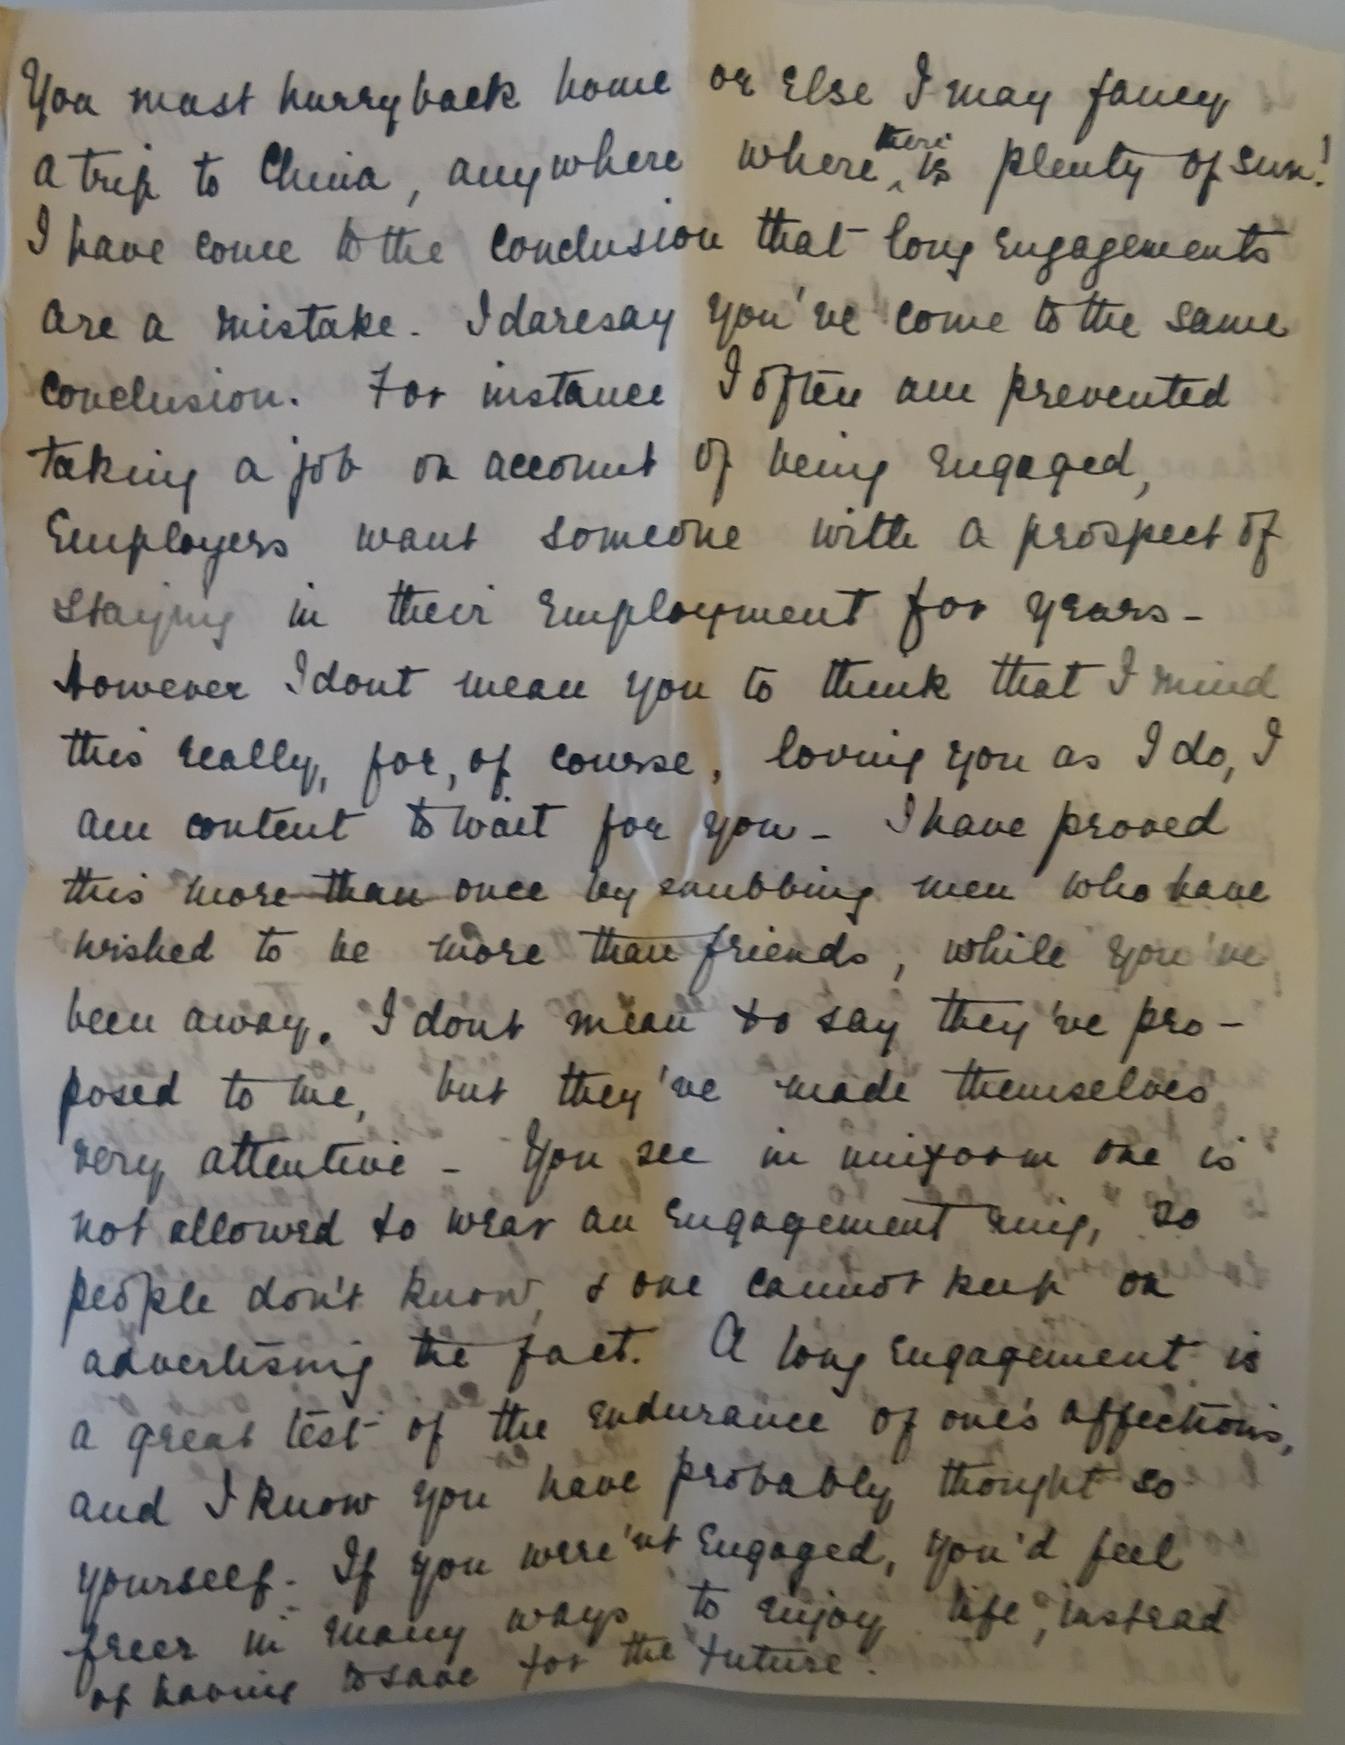 You must hurry back home or else I may fancy
a trip to China, anywhere where there is plenty of sun!
I have come to the conclusion that long engagements
are a mistake. I daresay you've come to the same
conclusion. For instance I often am prevented
taking a job on account of being engaged,
Employers want someone with a prospect of
staying in their employment for years -
However I dont mean you to think that I mind
this really, for, of course, loving you as I do, I
am content to wait for you - I have proved
this more than once by snubbing men who have
wished to be more than friends, while you've
been away. I dont mean to say they've pro-
posed to me, but they've made themselves
very attentive - You see in uniform one is
not allowed to wear an engagement ring, so
people don't know, & one cannot keep on
advertising the fact. A long engagement is
a great test of the endurance of one's affections,
and I know you have probably thought so
yourself. If you were'nt engaged, you'd feel
freer in many ways to enjoy life, instead
of having to save for the future.